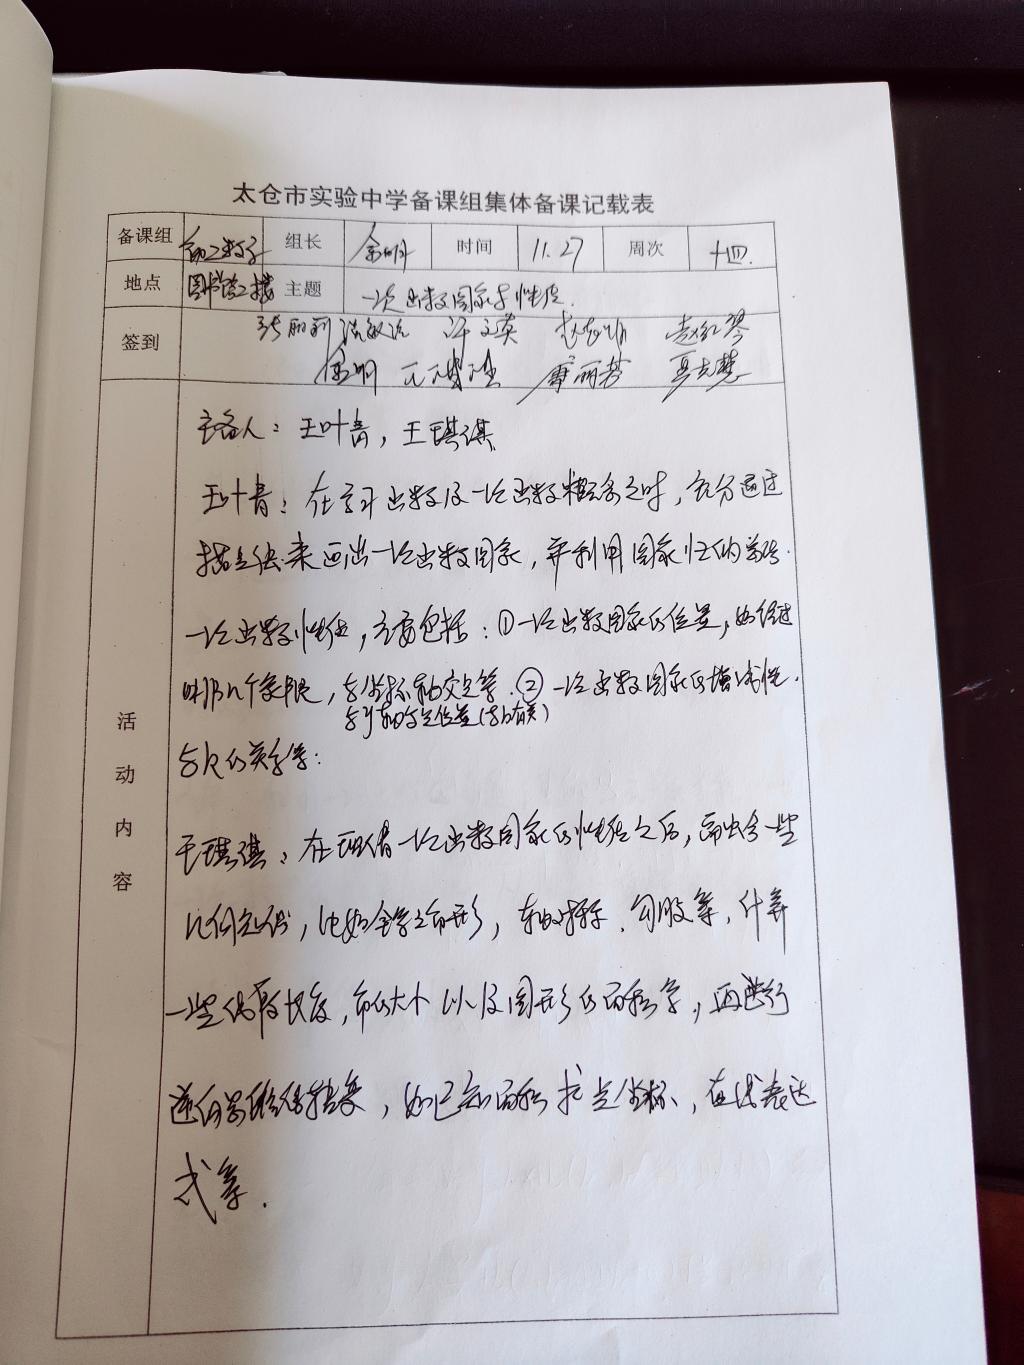 太仓市实验中学备课组集体备课记载表
备课组 初二数学 组长 金明 时间 11.27 周次 十四.
地点 图书馆二楼 主题 一次函数图象与性质.
签到 张丽莉
金明
活动内容
主备人：王叶青，王琪祺
王叶青：在学习函数及一次函数概念之时，充分通过
描点法来画出一次函数图象，并利用图象归纳总结
一次函数性质，主要包括：①一次函数图象的位置，如经过
哪几个象限，与坐标轴交点等.②一次函数图象的增减性.
与y轴交点位置(与b有关)
与k的关系等:
王琪祺：在理清一次函数图象的性质之后，给一些
几何知识，比如全等三角形，轴对称、勾股等，计算
一些线段长度，角的大小以及图形的面积等，再进行
逆向思维，如已知面积求点坐标、直线表达
式等.